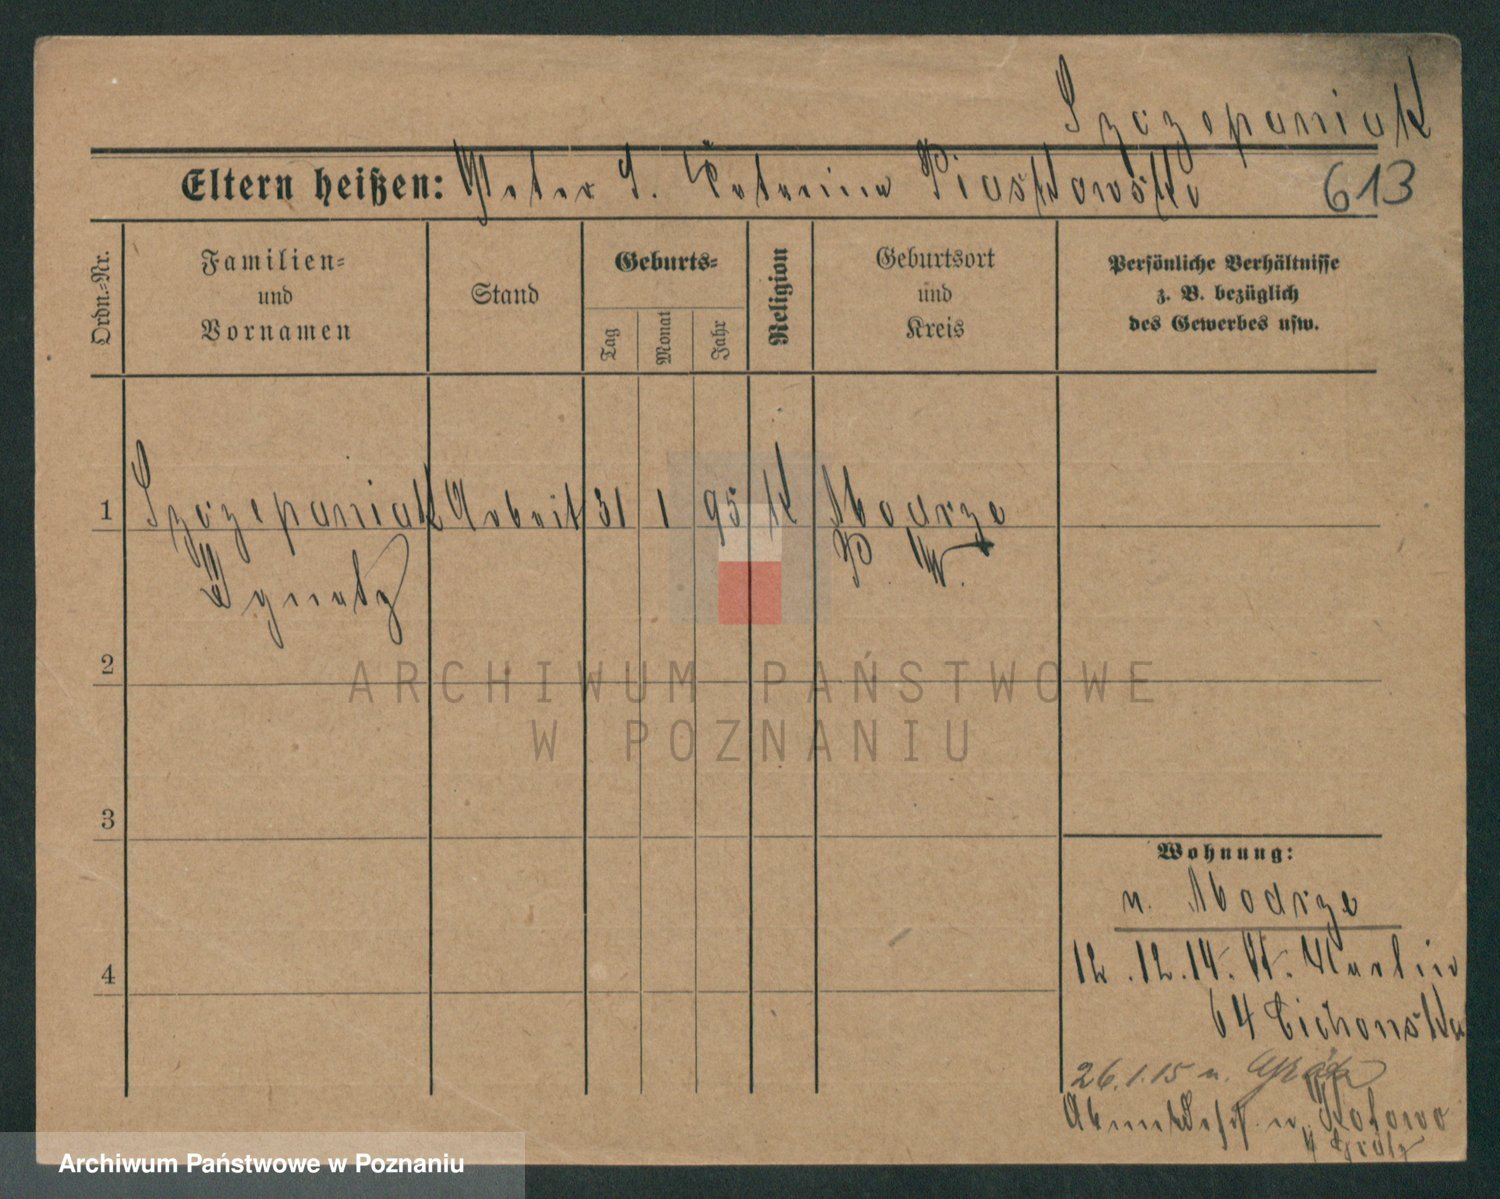 Szczepaniak
Eltern heißen: Peter S. Katarina Piaskowska
613
Ordn.-Nr.
Familien-
und
Vornamen
Stand
Geburts-
Tag
Monat
Jahr
Religion
Geburtsort
und
Kreis
Persönliche Verhältnisse
z. B. bezüglich
des Gewerbes usw.
1 Szczepaniak Arbeit 31 1 95 K Modrze
Ignatz P. W.
2
ARCHIWUM PAŃSTWOWE
W POZNANIU
3
Wohnung:
n. Modrze
4
12.12.14. W. Berlin
64 Cichonska
26.1.15 n.
n. Kotowo
Grätz
Archiwum Państwowe w Poznaniu